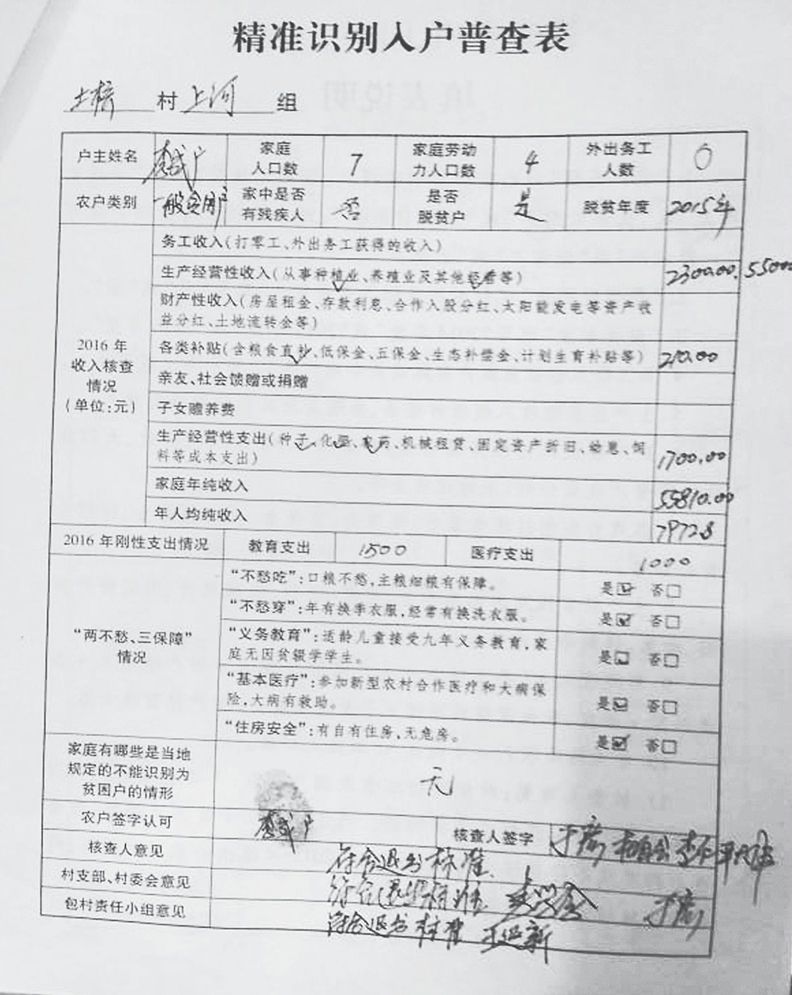 精准识别入户普查表
土桥 村 上河 组
户主姓名 李成户 家庭人口数 7 家庭劳动力人口数 4 外出务工人数 0
农户类别 一般贫困户 家中是否有残疾人 否 是否脱贫户 是 脱贫年度 2015年
2016年收入核查情况(单位:元)
务工收入(打零工、外出务工获得的收入)
生产经营性收入(从事种植业、养殖业及其他经营等) 2300.00. 55000
财产性收入(房屋租金、存款利息、合作入股分红、太阳能发电等资产收
益分红、土地流转金等)
各类补贴(含粮食直补、低保金、五保金、生态补偿金、计划生育补贴等) 210.00
亲友、社会馈赠或捐赠
子女赡养费
生产经营性支出(种子、化肥、农药、机械租赁、固定资产折旧、幼崽、饲
料等成本支出) 1700.00
家庭年纯收入 55810.00
年人均纯收入 7972.8
2016年刚性支出情况 教育支出 1500 医疗支出 1000
“两不愁、三保障”情况
“不愁吃”:口粮不愁,主粮细粮有保障。 是☑ 否□
“不愁穿”:年有换季衣服,经常有换洗衣服。 是☑ 否□
“义务教育”:适龄儿童接受九年义务教育,家
庭无因贫辍学学生。 是☑ 否□
“基本医疗”:参加新型农村合作医疗和大病保
险,大病有救助。 是☑ 否□
“住房安全”:有自有住房,无危房。 是☑ 否□
家庭有哪些是当地
规定的不能识别为
贫困户的情形 无
农户签字认可 李成户 核查人签字
核查人意见 符合退出标准.
村支部、村委会意见 符合退出标准
包村责任小组意见 符合退出标准 王延新